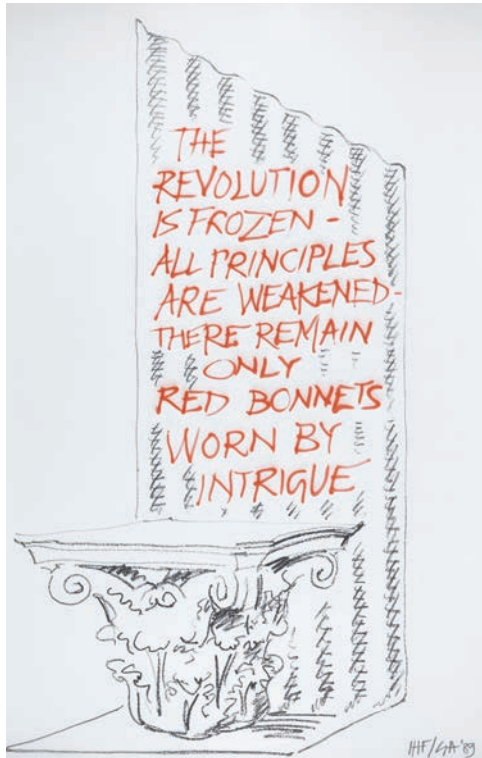 THE
REVOLUTION
IS FROZEN -
ALL PRINCIPLES
ARE WEAKENED -
THERE REMAIN
ONLY
RED BONNETS
WORN BY
INTRIGUE
IHF/GA '89